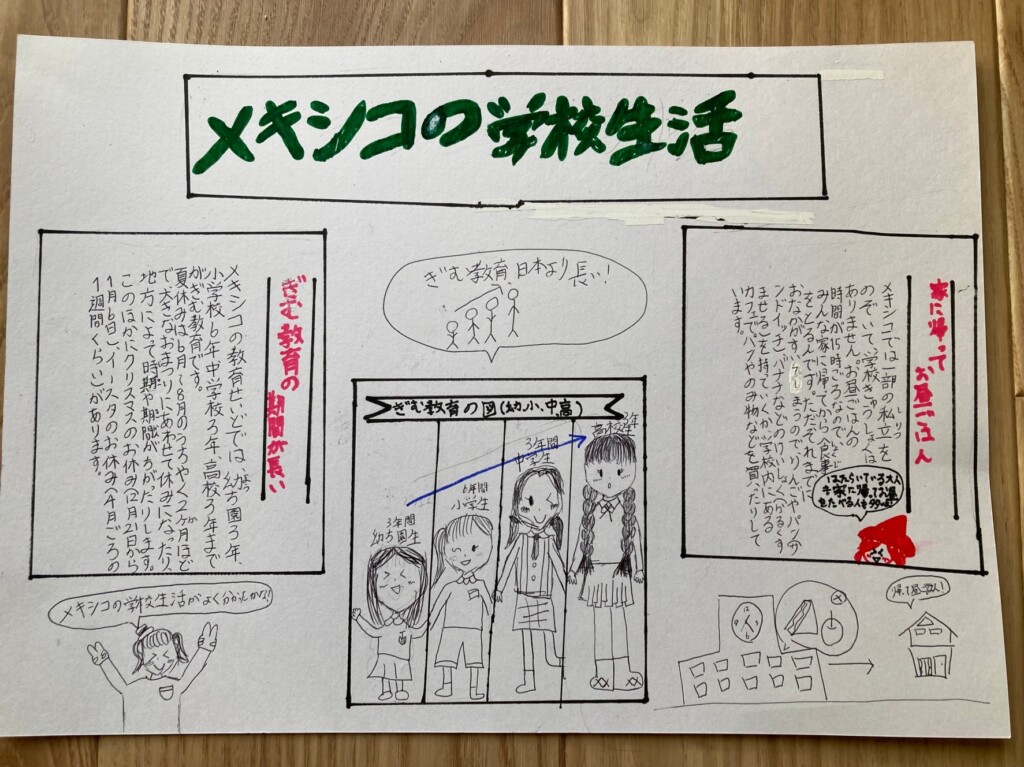 メキシコの学校生活
家に帰って
お昼ごはん
メキシコでは一部の私立を
しりつ
のぞいて、学校きゅうしょくは
ありません。お昼ごはんの
時間が15時ごろなので、
みんな家に帰ってから食事
をとるんです。ただそれまでに
おなかがすいてしまうので、りんごやパン(サ
ンドイッチ)バナナなどのけいしょく(かるくす
ませる)を持っていくか、学校内にある
カフェでパンやのみ物などを買ったりして
います。
はたらいている大人
も家に帰ってお昼
をたべる人も
ぎむ教育、日本より長い!
ぎむ教育の図(幼、小、中、高)
3年間
幼ち園生
6年間
小学生
3年間
中学生
3年
高校生
ぎむ教育の
期間が長い
メキシコの教育せいどでは、幼ち園3年、
小学校6年、中学校3年、高校3年まで
がぎむ教育です。
夏休みは6月〜8月のうちやく2ヶ月ほど
で、大きなおまつりにあわせて休みになったり、
地方によって時期や期間がちがったりします。
このほかにクリスマスのお休み(12月2日から
1月6日)、イースタのお休み(4月ごろの
1週間くらい)があります。
メキシコの学校生活がよく分かったかな?
帰って昼ごはん!